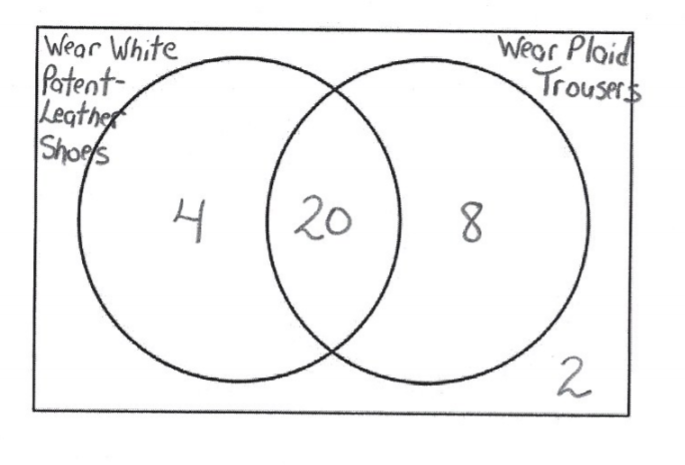 Wear White
Patent-
Leather
Shoes
Wear Plaid
Trousers
4
20
8
2